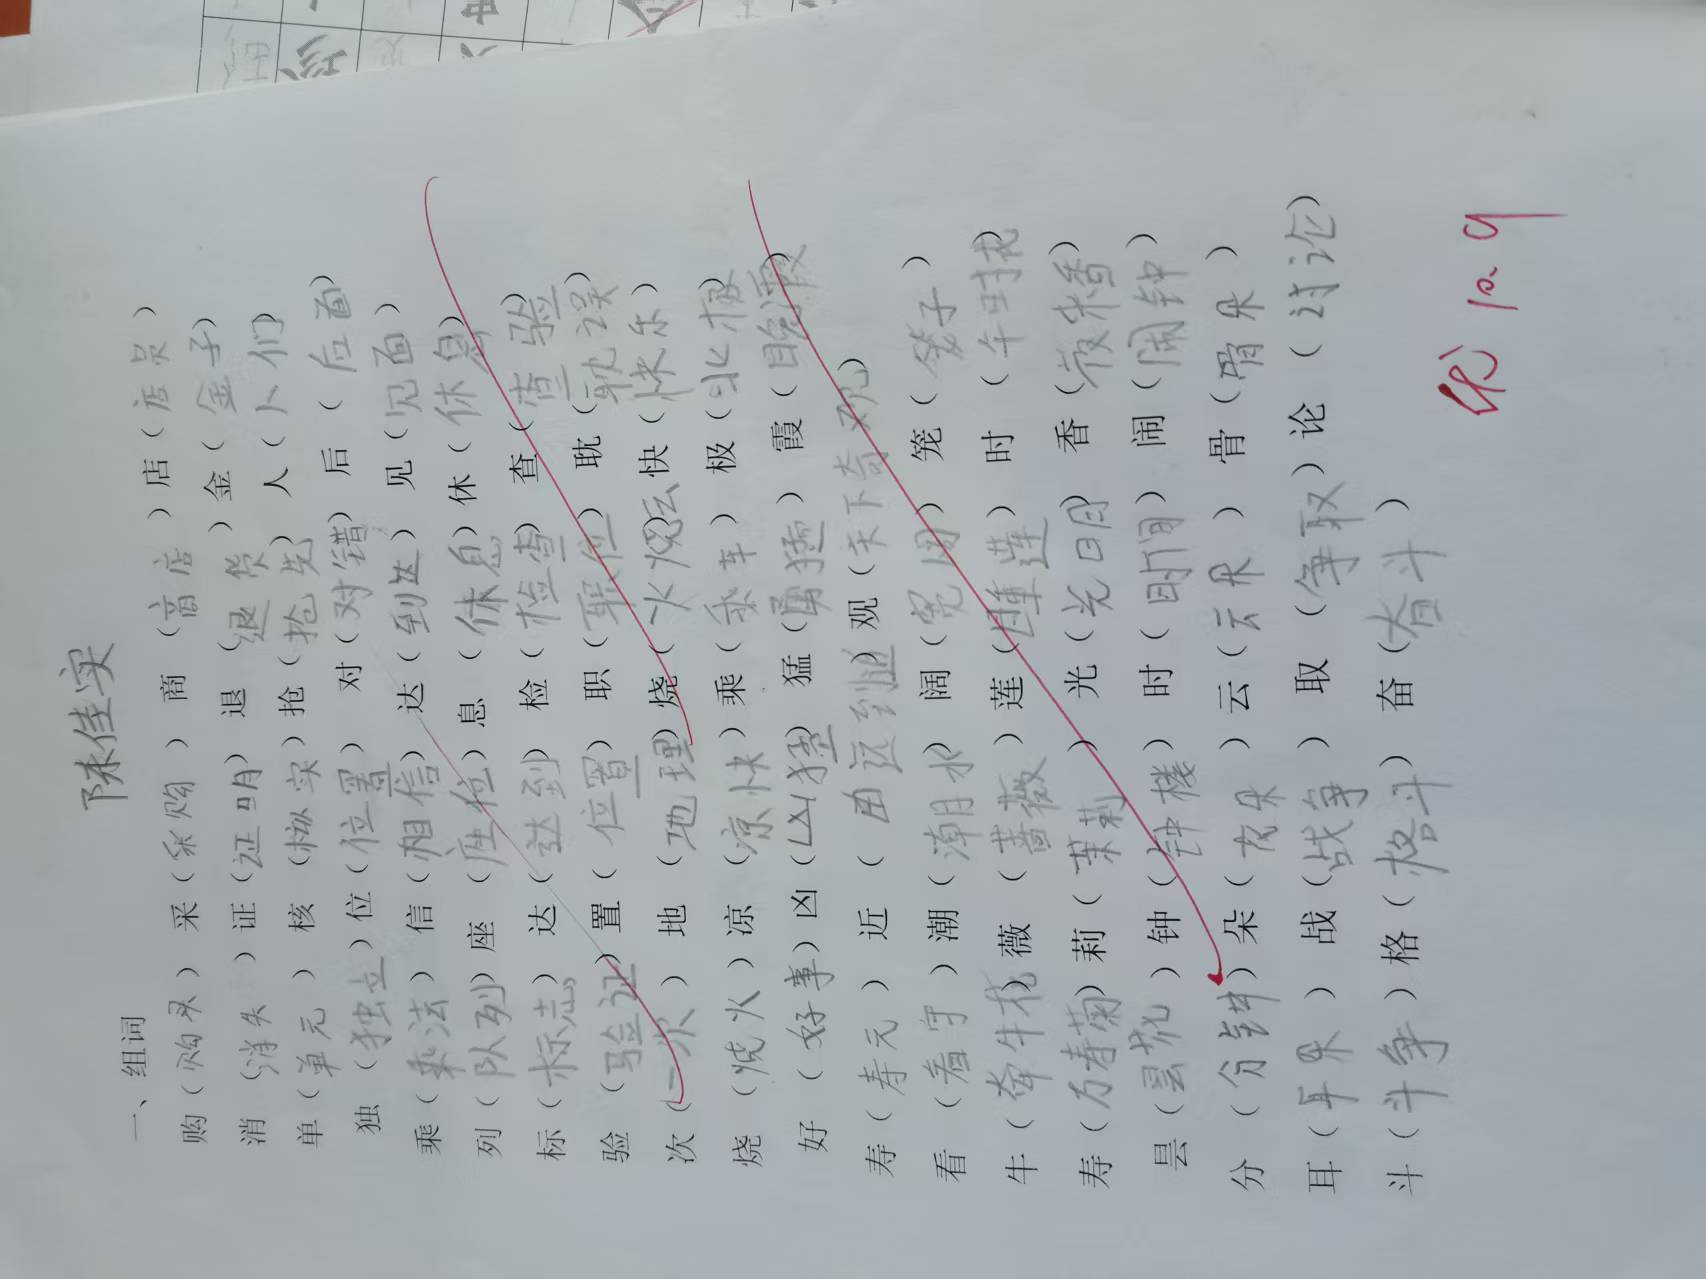 陈佳实
一、组词
购（购买）采（采购）商（商店）店（店员）
消（消失）证（证明）退（退货）金（金子）
单（单元）核（核实）抢（抢先）人（人们）
独（独立）位（位置）对（对错）后（后面）
乘（乘法）信（相信）达（到达）见（见面）
列（队列）座（座位）息（休息）休（休息）
标（标志）达（达到）检（检查）查（查验）
验（验证）置（位置）职（职位）耽（耽误）
次（一次）地（地理）烧（火烧云）快（快乐）
烧（烧火）凉（凉快）乘（乘车）极（北极）
好（好事）凶（凶猛）猛（勇猛）霞（晚霞）
寿（寿元）近（由远到近）观（天下奇观）
看（看守）潮（潮水）阔（宽阔）笼（笼子）
牛（牵牛花）薇（蔷薇）莲（睡莲）时（午时花）
寿（万寿菊）莉（茉莉）光（光明）香（夜来香）
昙（昙花）钟（钟楼）时（时间）闹（闹钟）
分（分钟）朵（花朵）云（云朵）骨（骨朵）
耳（耳朵）战（战争）取（争取）论（讨论）
斗（斗争）格（格斗）奋（奋斗）
优 10.9